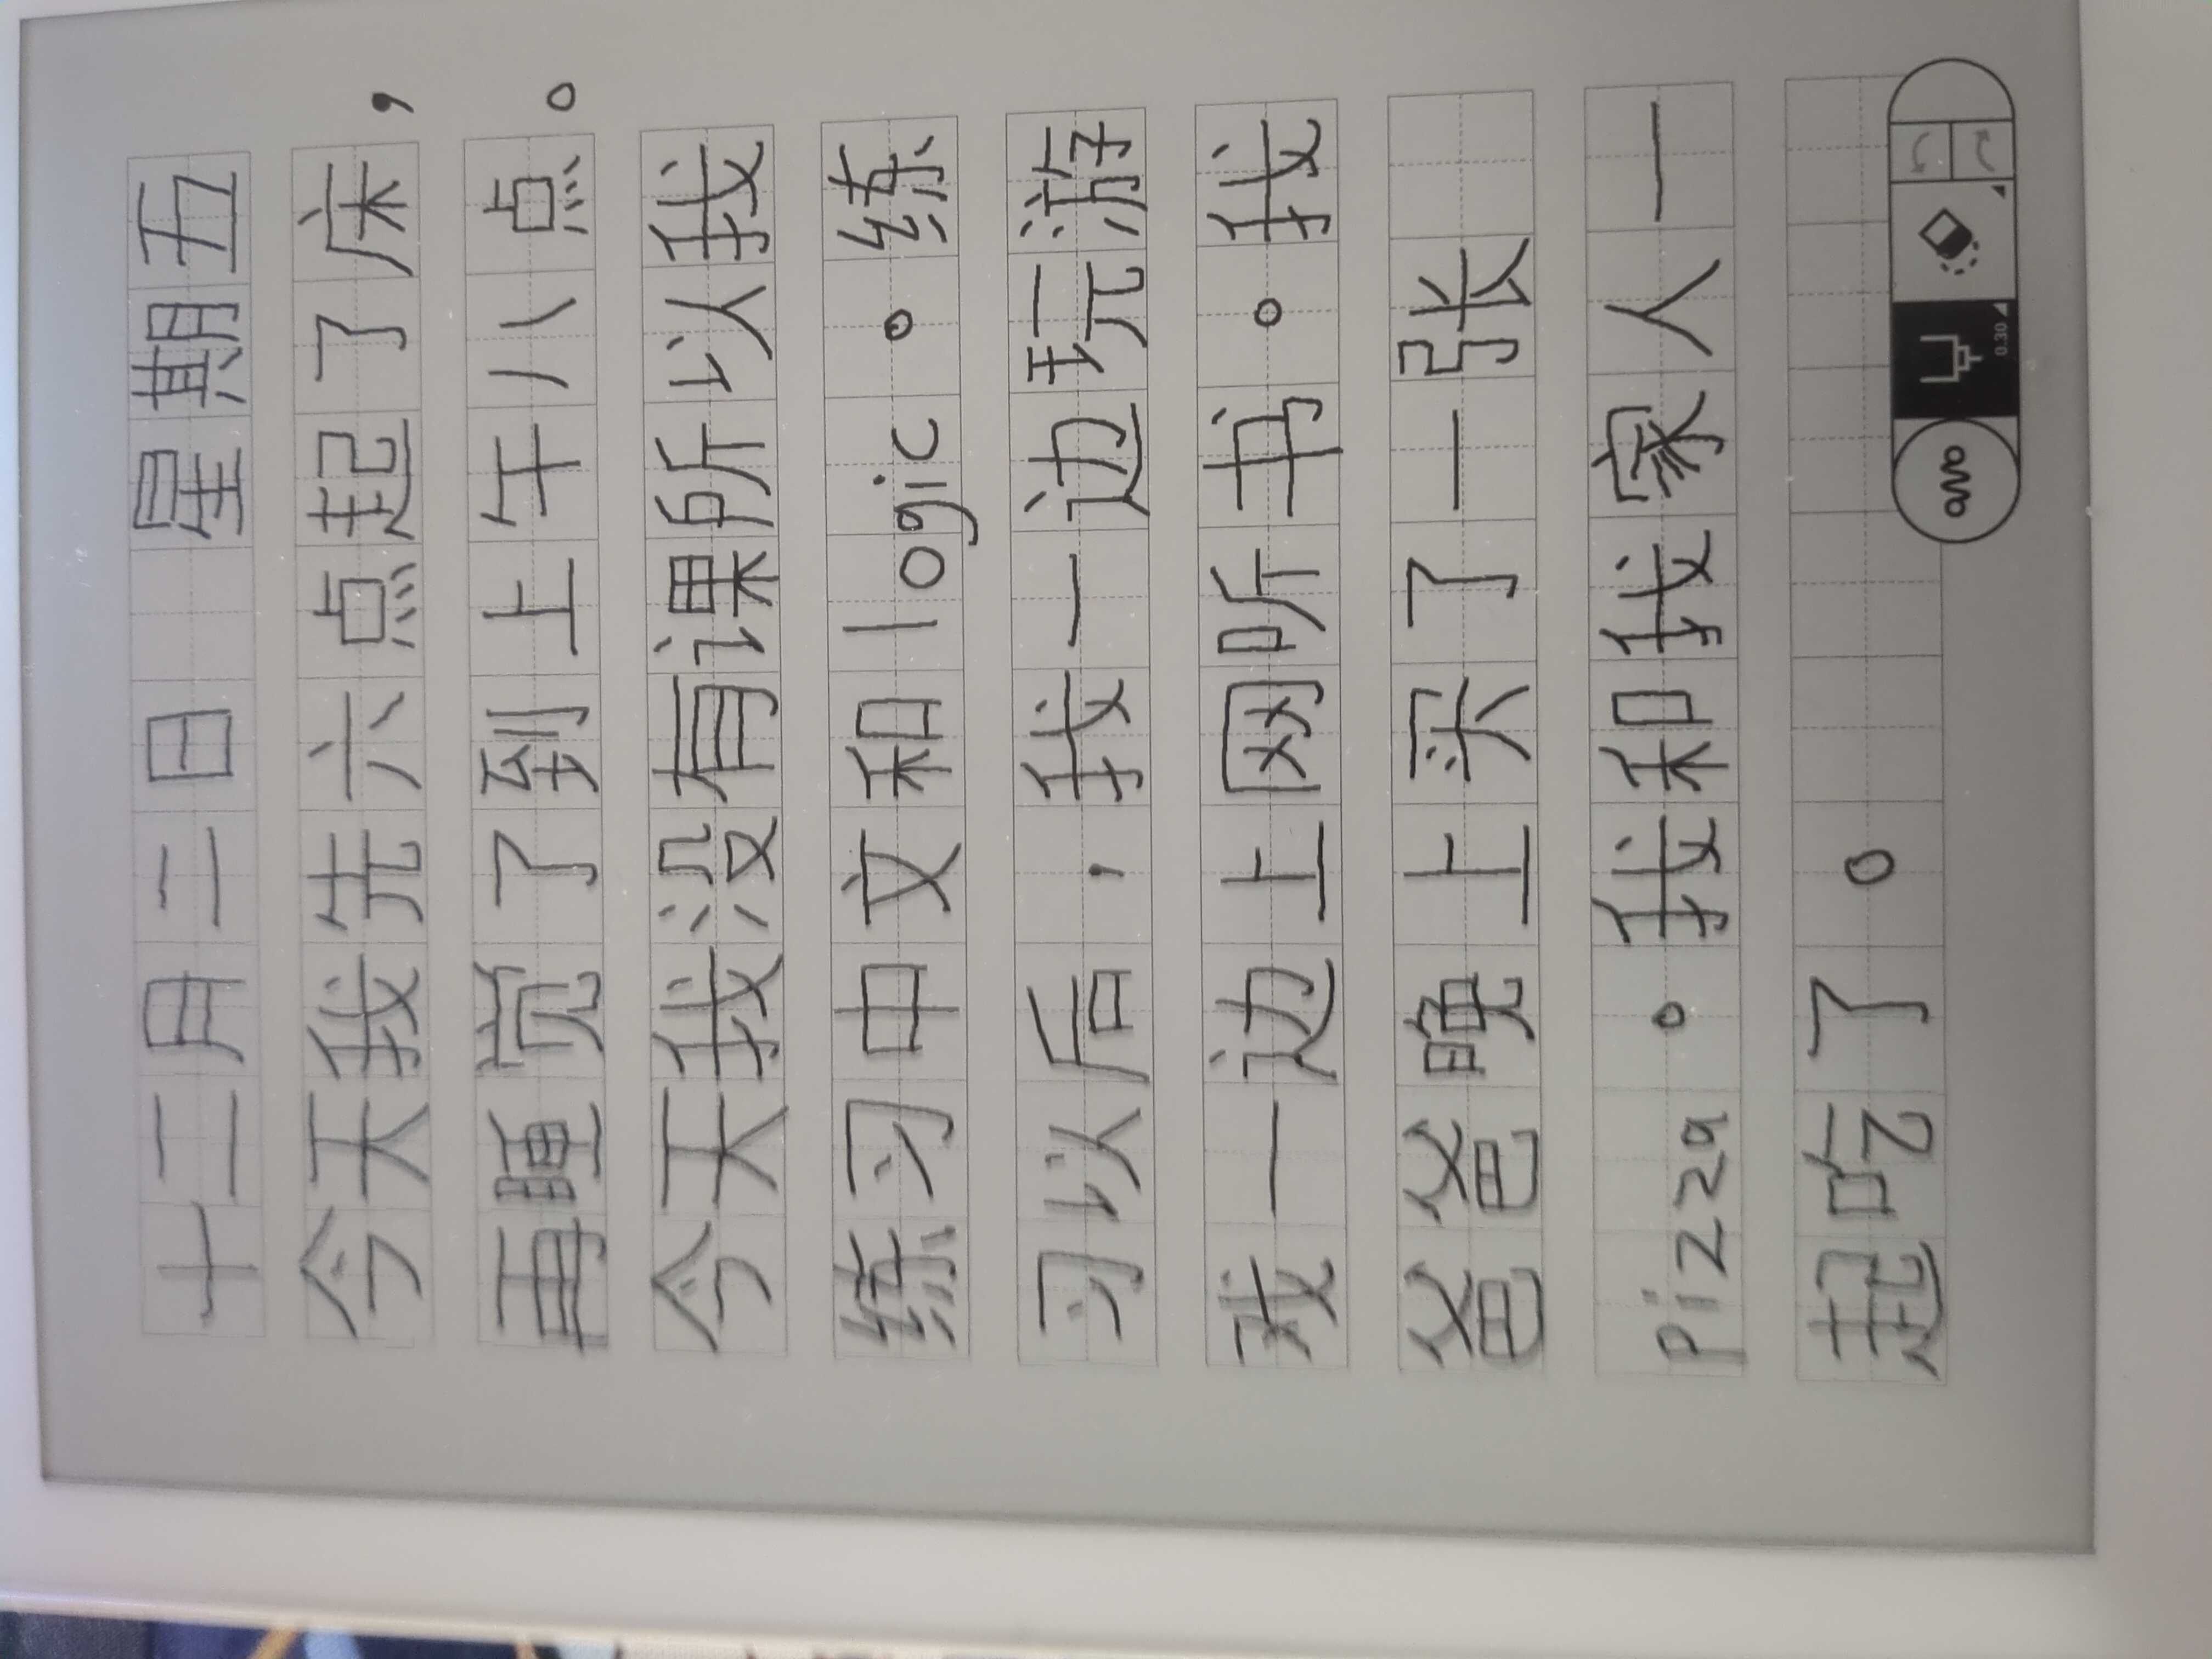 十二月二日 星期五
今天我先六点起了床，
再睡觉了到上午八点。
今天我没有课所以我
练习中文和logic。练
习以后，我一边玩游
戏一边上网听书。我
爸爸晚上买了一张
pizza。我和我家人一
起吃了。
0.30